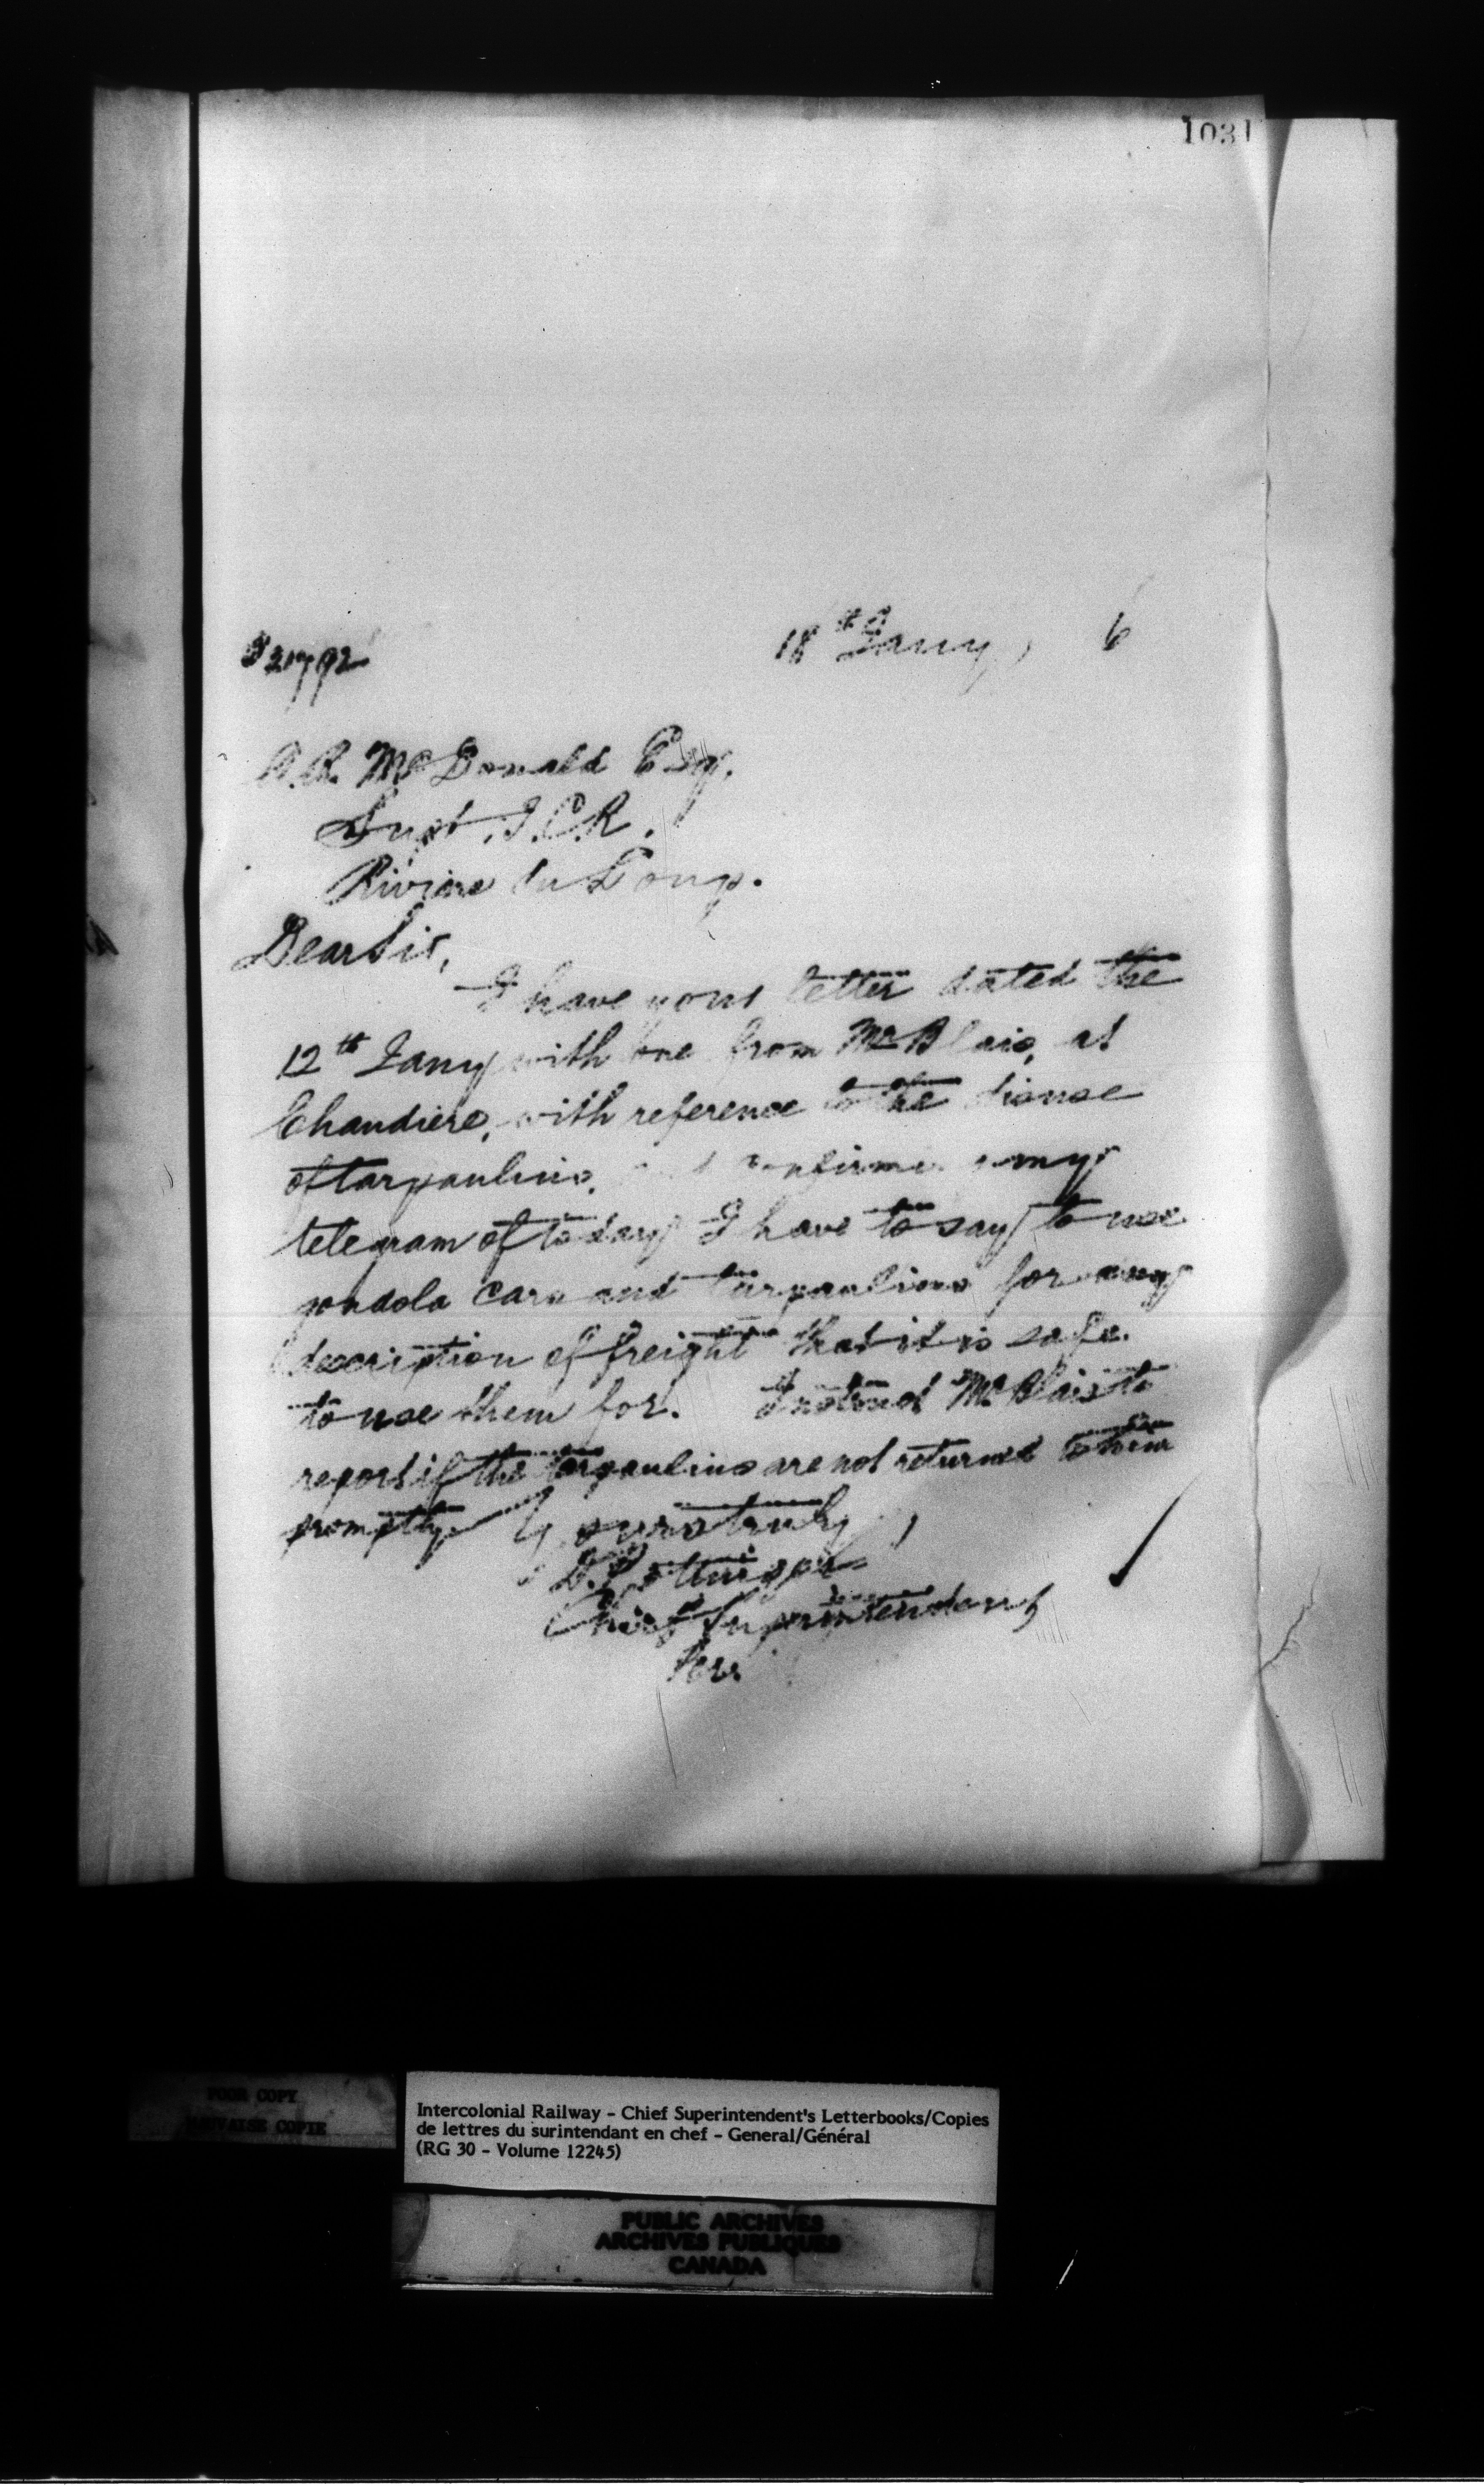 1031
18th Jany, 6
21792
A.R. McDonald Esq.
Supt. I.C.R.
Rivière du Loup.
Dear Sir,
I have your letter dated the
12th Jany with one from Mr Blais, at
Chaudière, with reference to the disuse
of tarpaulins, my
telegram of today I have to say to use
gondola cars and tarpaulins for any
description of freight that it is safe
to use them for. Instruct Mr Blais to
report if the tarpaulins are not returned to him
promptly. Yours truly,
D. Pottinger
Chief Superintendent
POOR COPY
MAUVAISE COPIE
Intercolonial Railway - Chief Superintendent's Letterbooks/Copies
de lettres du surintendant en chef - General/Général
(RG 30 - Volume 12245)
PUBLIC ARCHIVES
ARCHIVES PUBLIQUES
CANADA